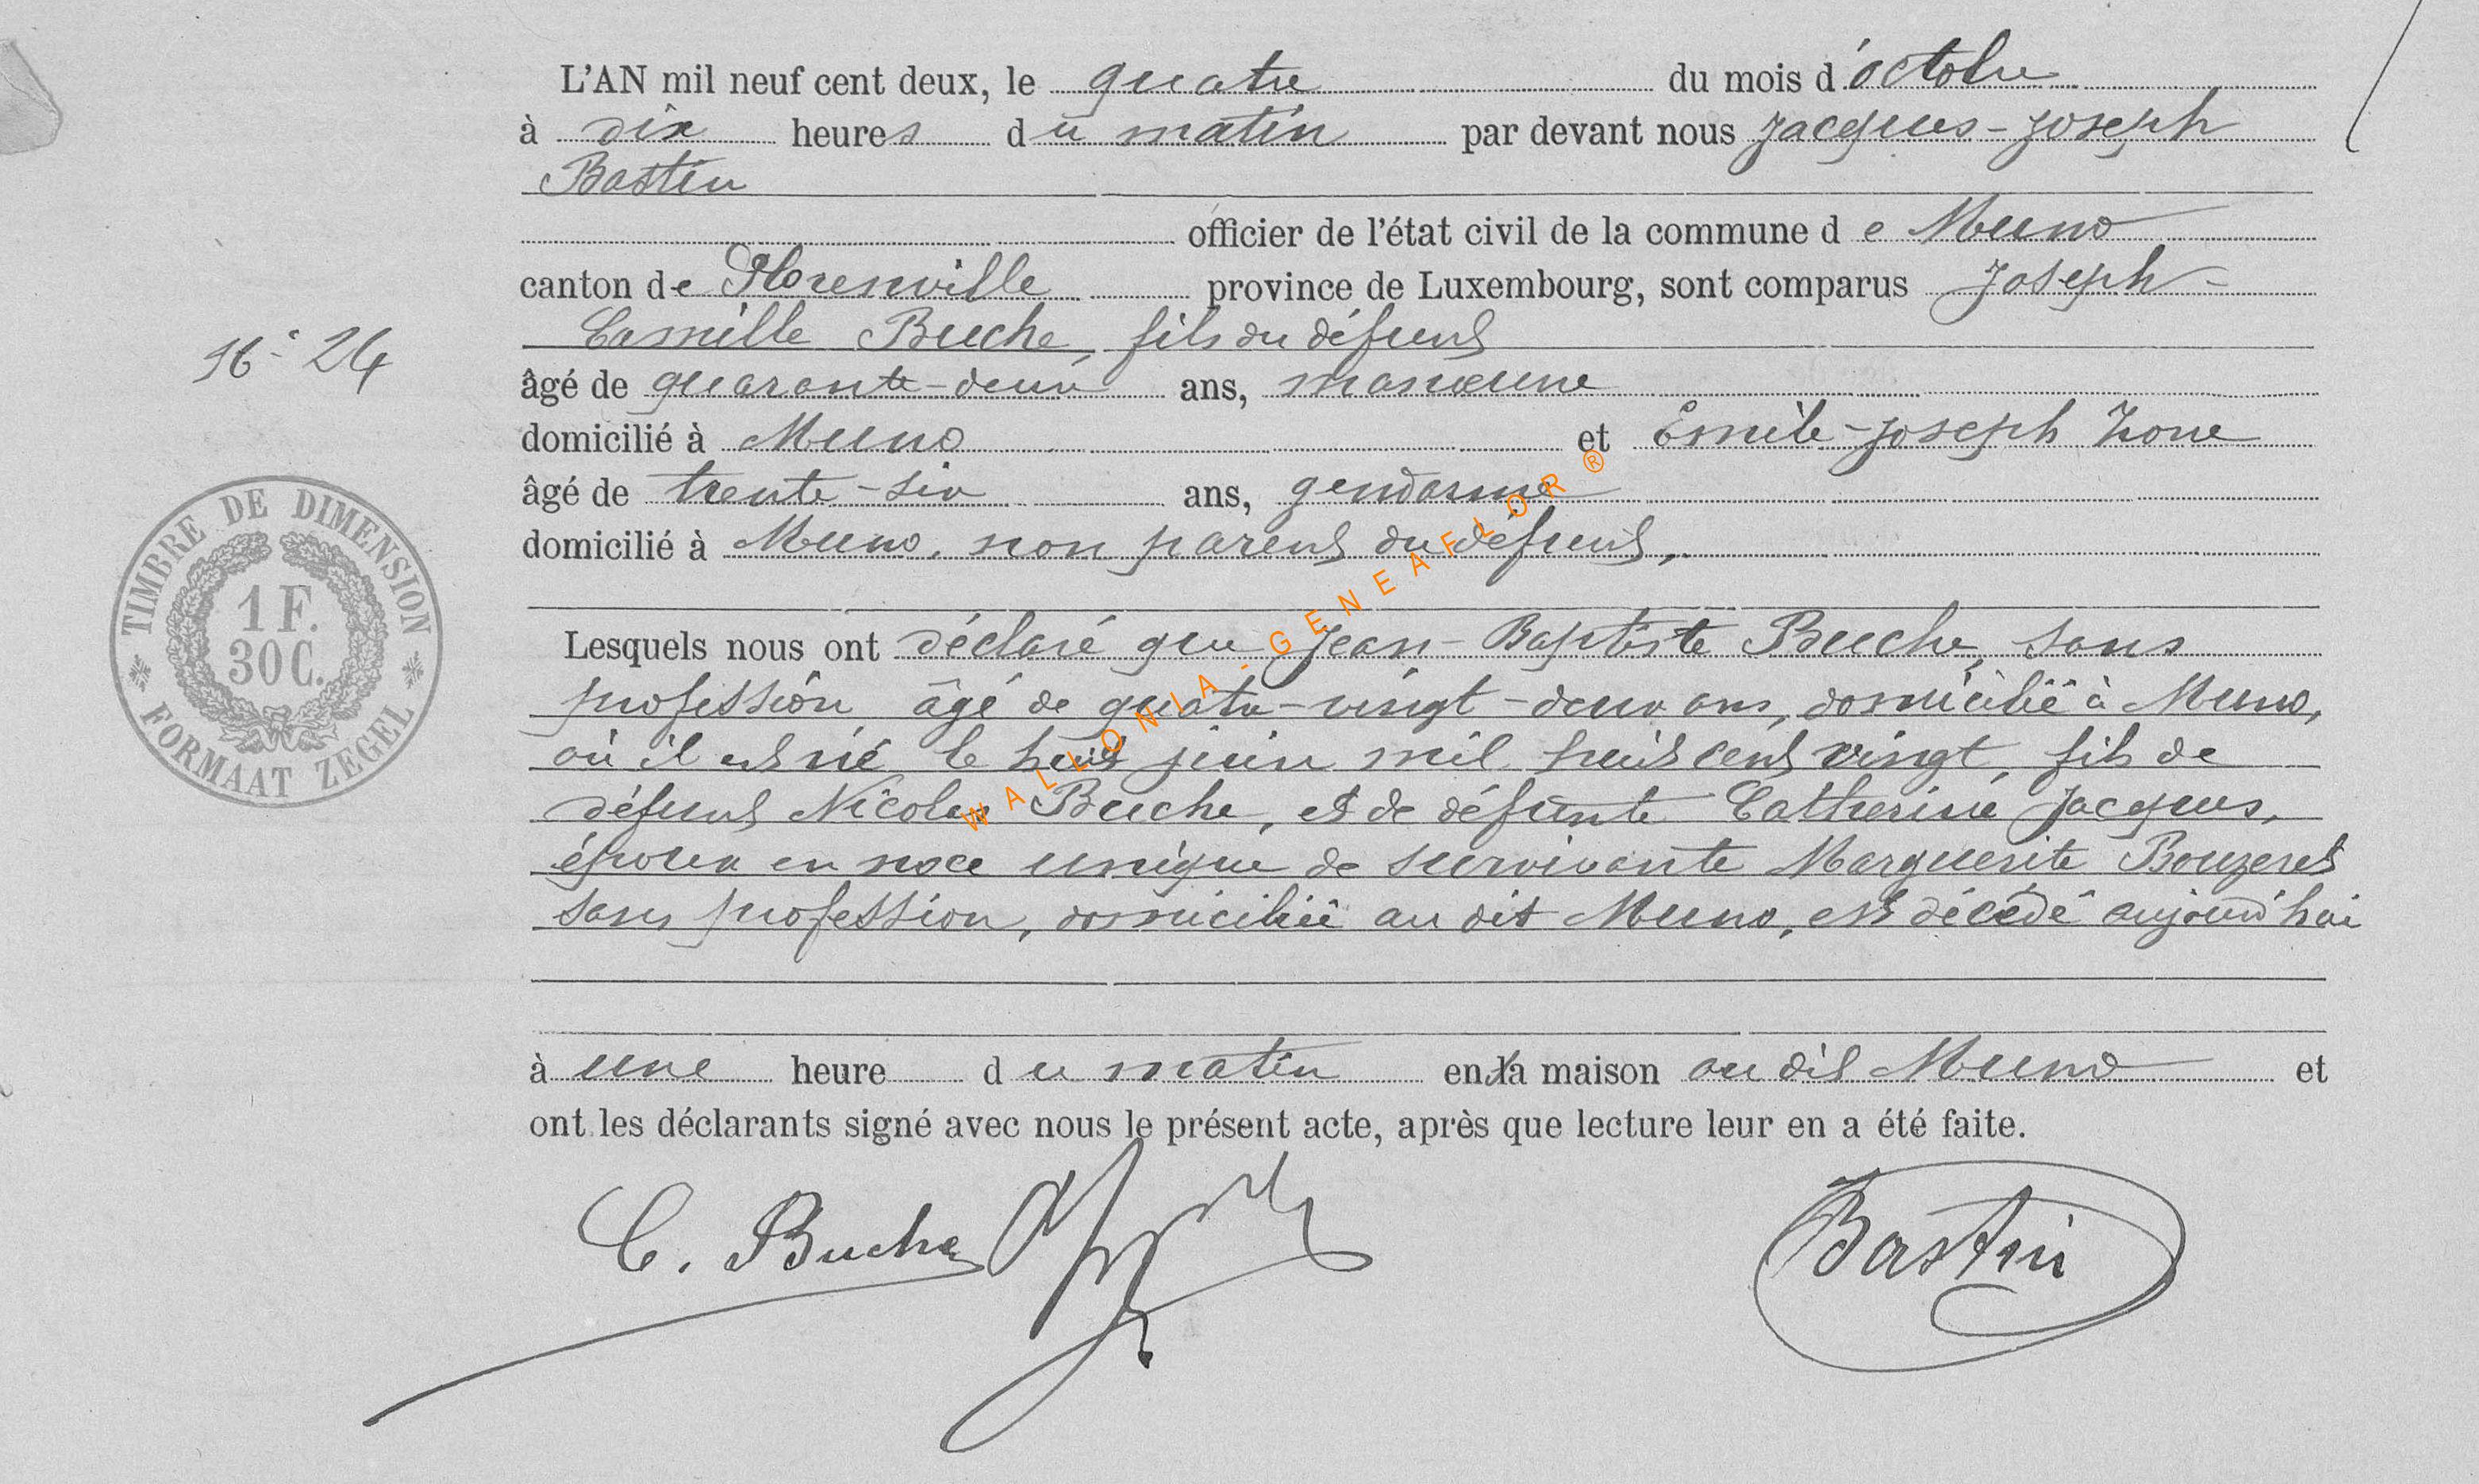 L'AN mil neuf cent deux, le quatre du mois d'octobre
à dix heures du matin par devant nous Jacques-Joseph
Bastin
officier de l'état civil de la commune de Muno
canton de Florenville province de Luxembourg, sont comparus Joseph-
Camille Buche, fils du défunt
N° 24
âgé de quarante-deux ans, manœuvre
domicilié à Muno et Emile-Joseph
âgé de trente-six ans, gendarme
domicilié à Muno, non parent du défunt,
TIMBRE DE DIMENSION
1 F.
30 C.
FORMAAT ZEGEL
Lesquels nous ont déclaré que Jean-Baptiste Buche, sans
profession, âgé de quatre-vingt-deux ans, domicilié à Muno,
où il est né le huit juin mil huit cent vingt, fils de
défunt Nicolas Buche, et de défunte Catherine Jacques,
époux en noce unique de survivante Marguerite Bouzeret
sans profession, domiciliée au dit Muno, est décédé aujourd'hui
à une heure du matin en la maison au dit Muno et
ont les déclarants signé avec nous le présent acte, après que lecture leur en a été faite.
C. Buche
Bastin
WALLONIA-GENEAFLOR®